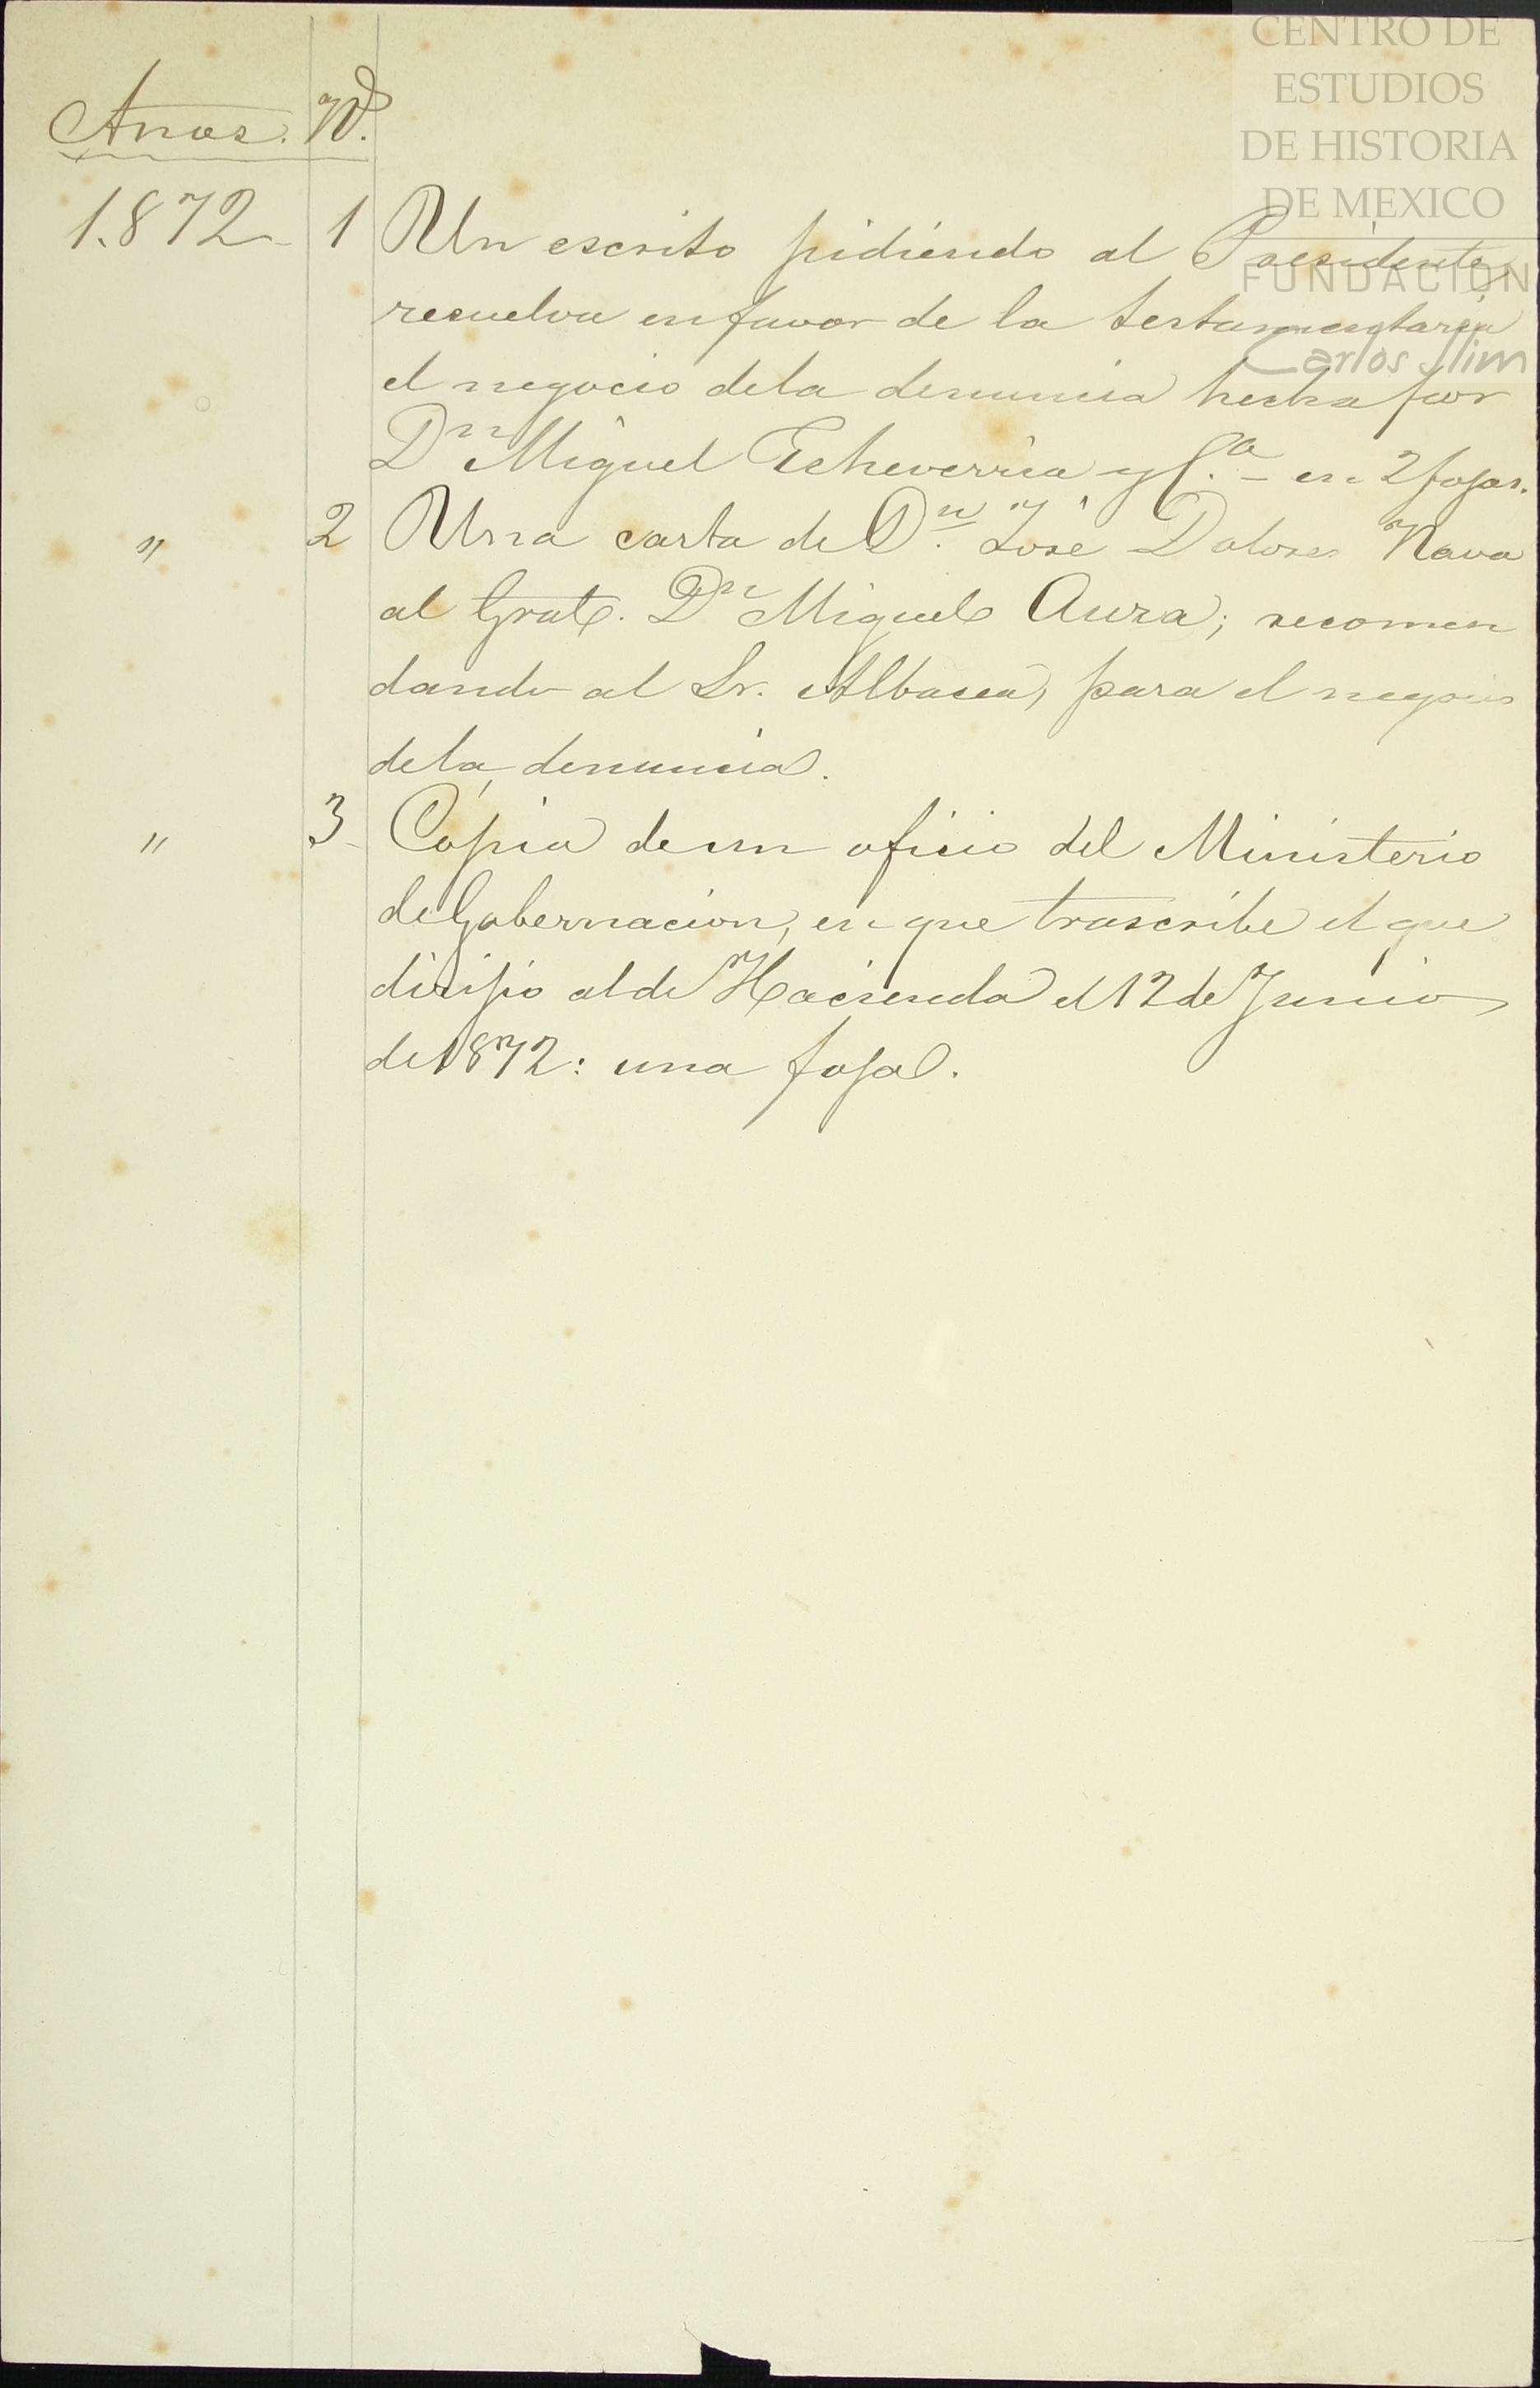 CENTRO DE
ESTUDIOS
DE HISTORIA
DE MEXICO
FUNDACIÓN
Carlos Slim
Años. Nº.
1.872 1 Un escrito pidiendo al Presidente,
resuelva en favor de la testamentaria
el negocio dela denuncia hecha por
Dⁿ Miguel Echeverria y C.ª - en 2 fojas.
" 2 Una carta de Dⁿ. José Dolores Nava
al Gral. Dⁿ Miguel Auza; recomen
dando al Sr. Albacea, para el negocio
dela denuncia.
" 3 Copia de un oficio del Ministerio
de Gobernacion, en que trascribe el que
dirijio al de Hacienda el 12 de Junio
de 1872: una foja.